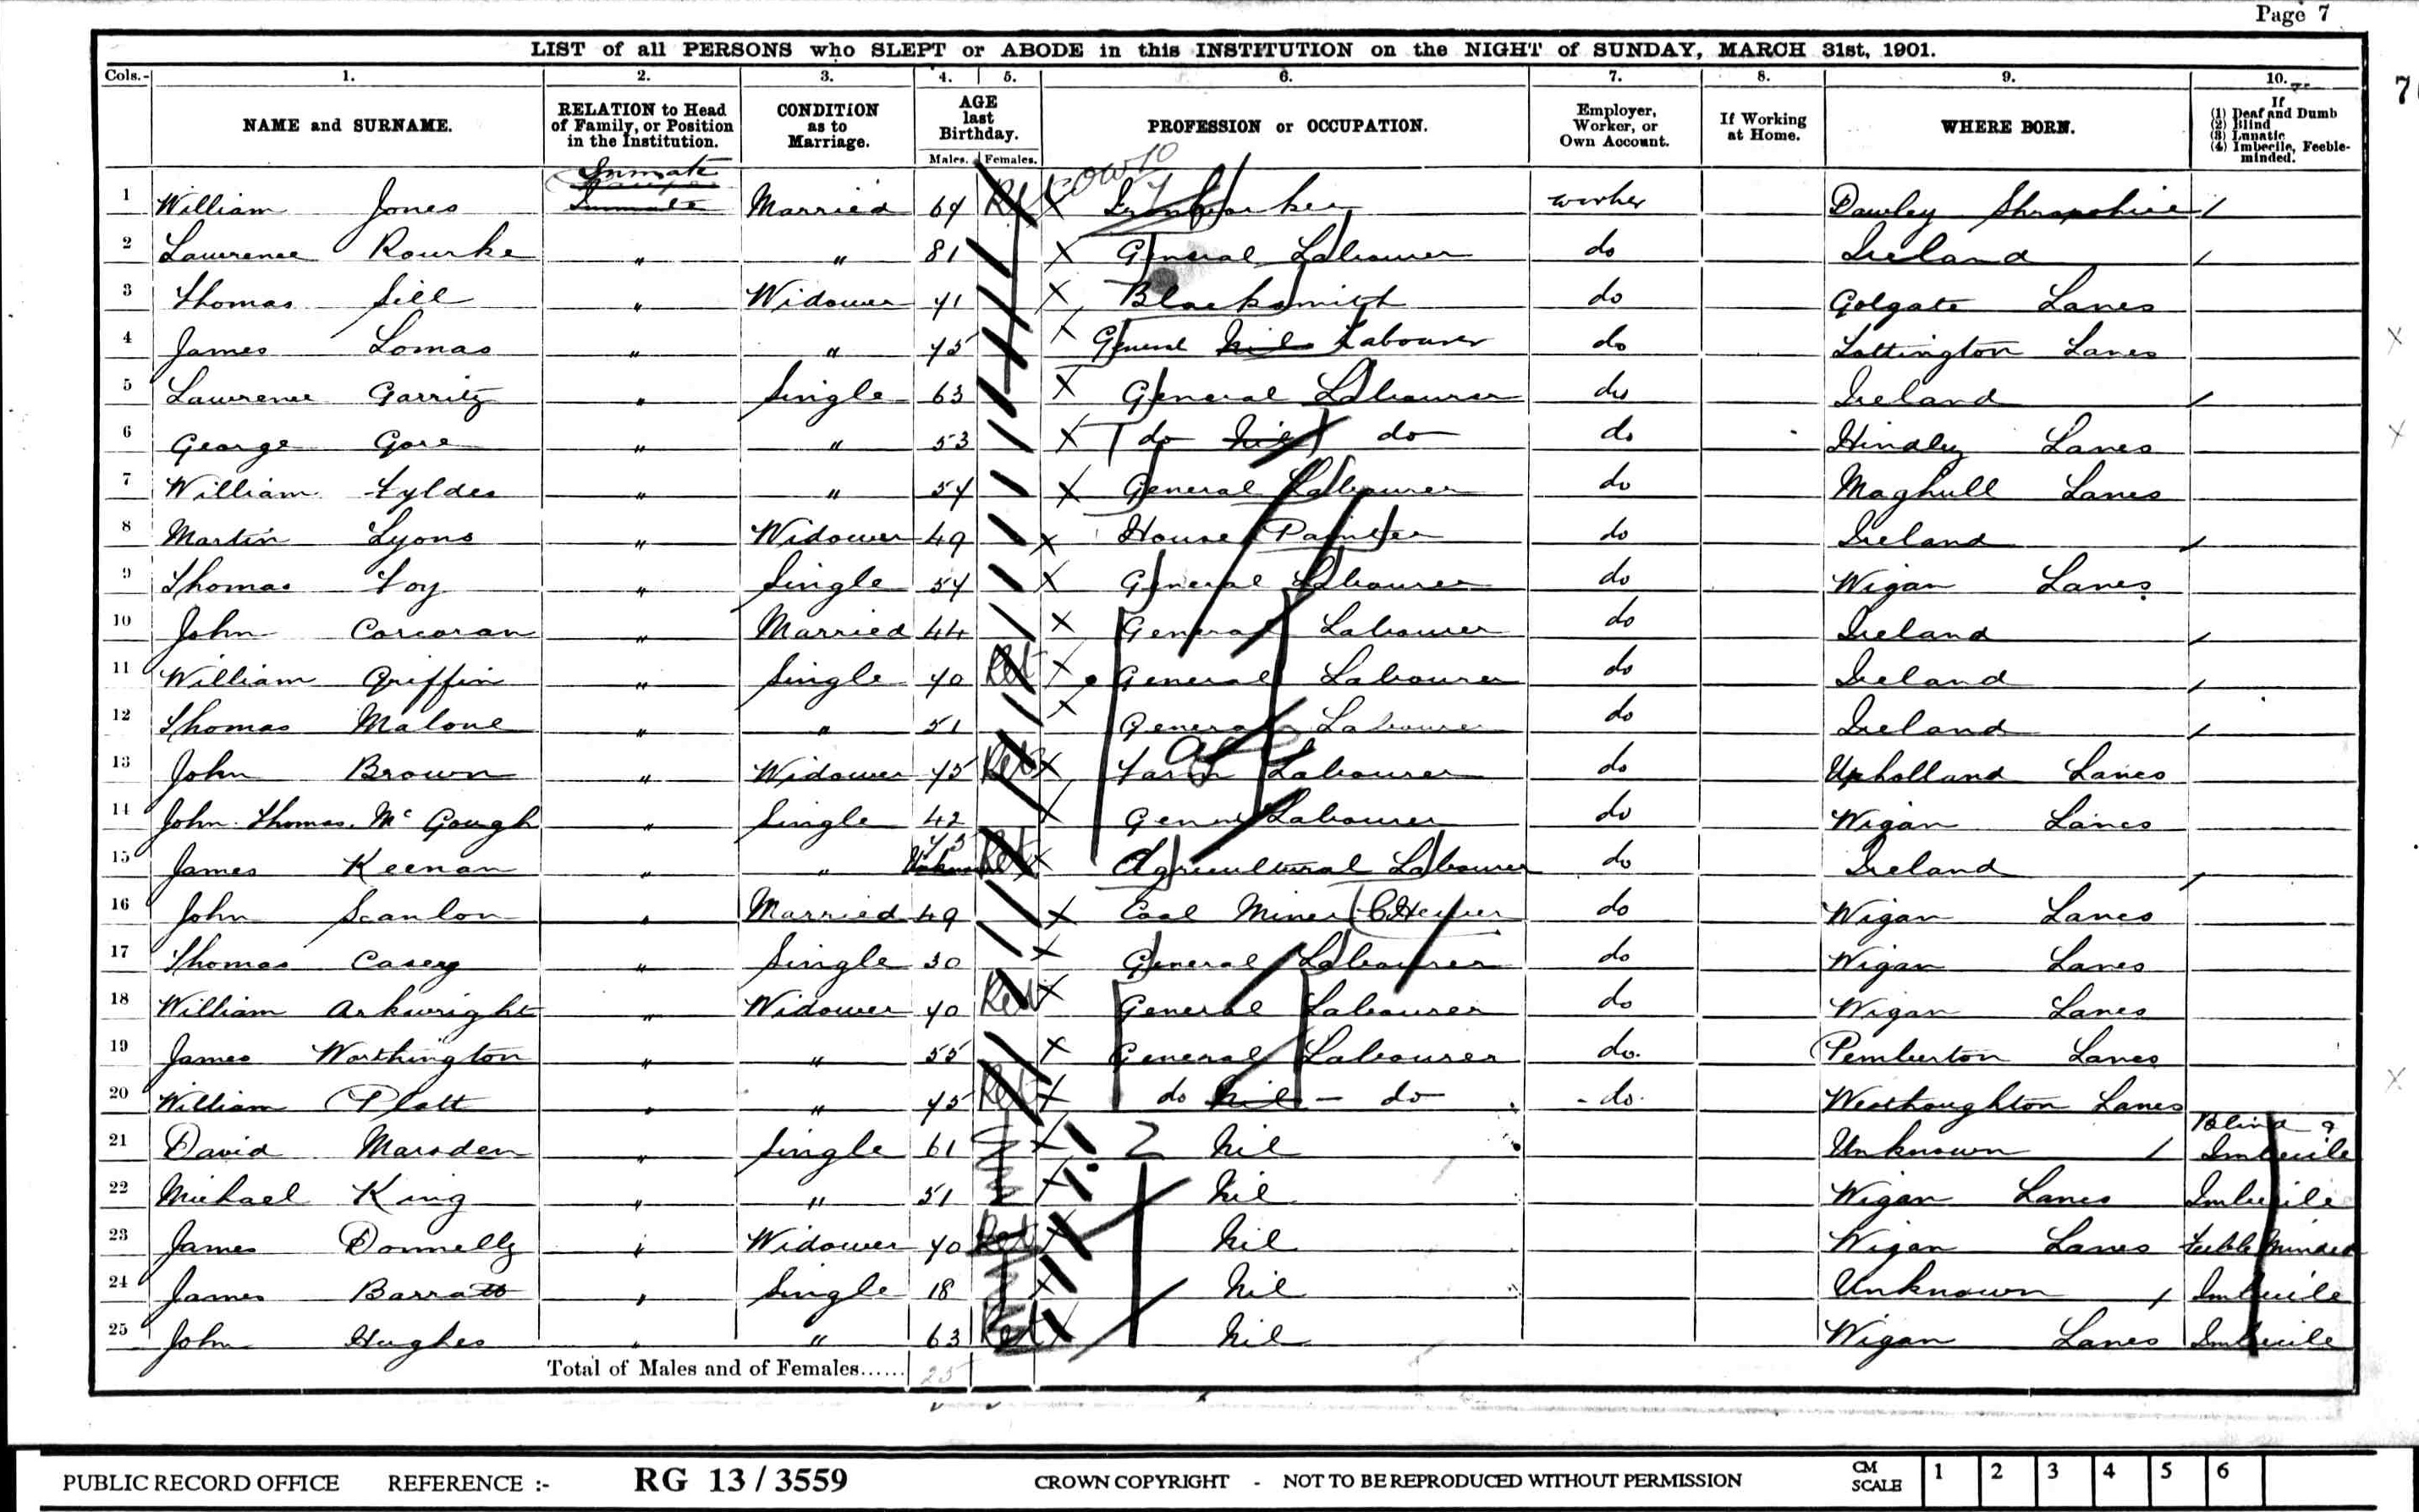 Page 7
LIST of all PERSONS who SLEPT or ABODE in this INSTITUTION on the NIGHT of SUNDAY, MARCH 31st, 1901.
Cols.- 1. 2. 3. 4. 5. 6. 7. 8. 9. 10.
NAME and SURNAME. RELATION to Head of Family, or Position in the Institution. CONDITION as to Marriage. AGE last Birthday. Males. Females. PROFESSION or OCCUPATION. Employer, Worker, or Own Account. If Working at Home. WHERE BORN. If (1) Deaf and Dumb (2) Blind (3) Lunatic (4) Imbecile, Feeble-minded.
1 William Jones Inmate Married Ret X worker Dawley Shropshire
2 Lawrence Rourke " " 81 X General Labourer do Ireland
3 Thomas Sill " Widower 71 X Blacksmith do Golgate Lancs
4 James Lomas " " 75 X General Nil Labourer do Lancs X
5 Lawrence Garrity " Single 63 X General Labourer do Ireland
6 George Gore " " 53 X do Nil do do Hindley Lancs X
7 William Fyldes " " 57 X General Labourer do Maghull Lancs
8 Martin Lyons " Widower 49 X House Painter do Ireland
9 Thomas Foy " Single 57 X General Labourer do Wigan Lancs
10 John Corcoran " Married 44 X General Labourer do Ireland
11 William Griffin " Single 70 Ret X General Labourer do Ireland
12 Thomas Malone " " 51 X General Labourer do Ireland
13 John Brown " Widower 75 Ret X Farm Labourer do Upholland Lancs
14 John Thomas Mc Gough " Single 42 X Genral Labourer do Wigan Lancs
15 James Keenan " " 75 Unknown Ret X Agricultural Labourer do Ireland
16 John Scanlon " Married 49 X Coal Miner Hewer do Wigan Lancs
17 Thomas Casey " Single 30 X General Labourer do Wigan Lancs
18 William Arkwright " Widower 70 Ret X General Labourer do Wigan Lancs
19 James Worthington " " 55 X General Labourer do. Pemberton Lancs
20 William Platt " " 75 Ret X do Nil - do - do. Westhoughton Lancs X
21 David Marsden " Single 61 X Nil Unknown Blind & Imbecile
22 Michael King " " 51 X Nil Wigan Lancs Imbecile
23 James Donnelly " Widower 70 Ret X Nil Wigan Lancs Feeble Minded
24 James Barratt " Single 18 X Nil Unknown Imbecile
25 John Hughes " " 63 Ret X Nil Wigan Lancs Imbecile
Total of Males and of Females...... 25
PUBLIC RECORD OFFICE REFERENCE :- RG 13 / 3559 CROWN COPYRIGHT - NOT TO BE REPRODUCED WITHOUT PERMISSION CM SCALE 1 2 3 4 5 6